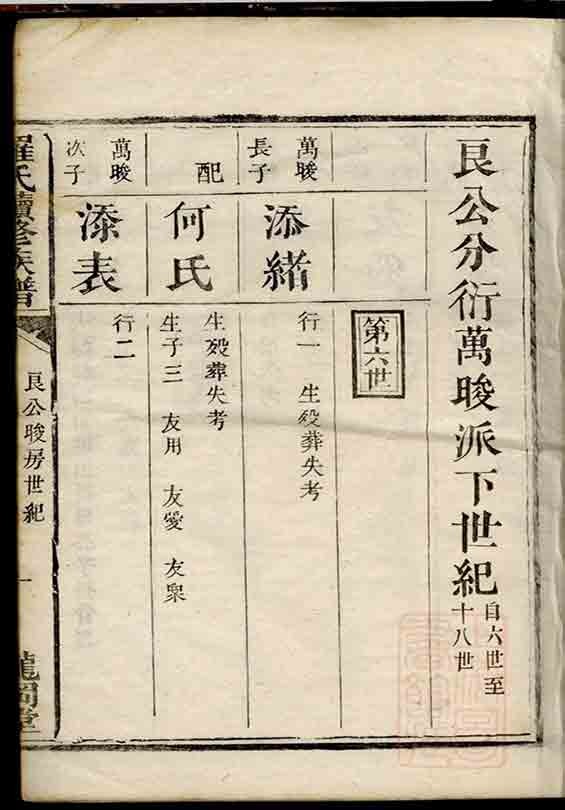 艮公分衍萬晙派下世紀
自六世至
十八世
第六世
萬晙
長子
添緒
行一 生殁葬失考
配
何氏
生殁葬失考
生子三 友用 友愛 友衆
萬晙
次子
添表
行二
羅氏續修族譜
艮公晙房世紀
一